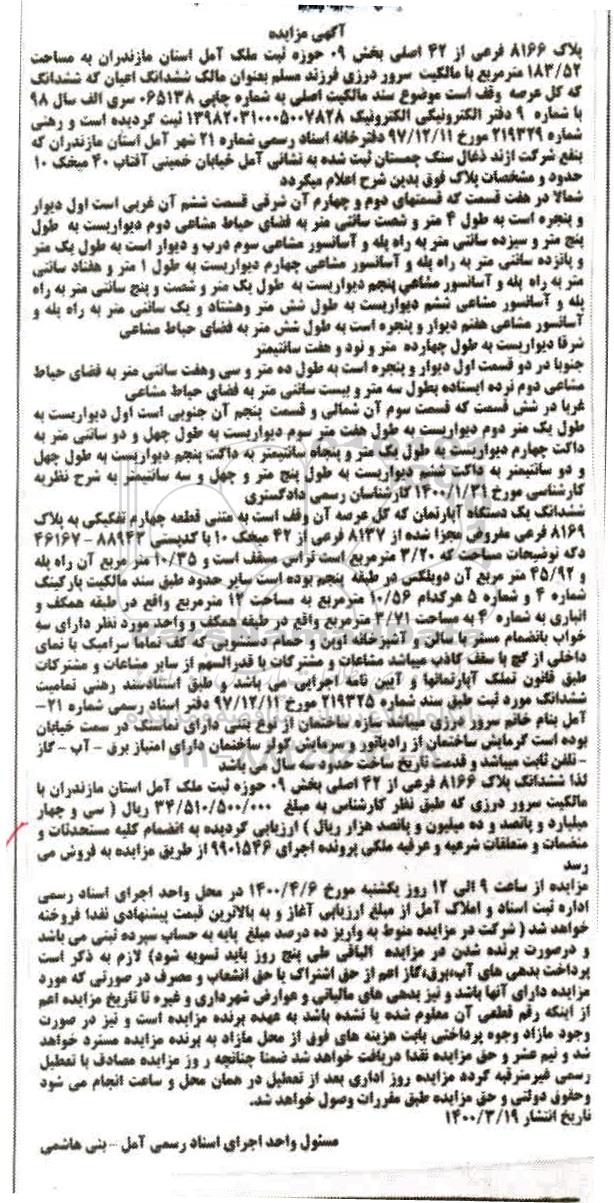 آگهی مزایده
پلاک ۸۱۶۶ فرعی از ۴۲ اصلی بخش ۰۹ حوزه ثبت ملک آمل استان مازندران به مساحت
۱۸۳/۵۲ مترمربع با مالکیت سرور درزی فرزند مسلم بعنوان مالک ششدانگ اعیان که ششدانگ
که کل عرصه وقف است موضوع سند مالکیت اصلی به شماره چاپی ۰۶۵۱۳۸ سری الف سال ۹۸
با شماره ۹ دفتر الکترونیکی الکترونیک ۱۳۹۸۲۰۳۱۰۰۰۵۰۰۷۸۲۸ ثبت گردیده است و رهنی
شماره ۲۱۹۳۲۹ مورخ ۹۷/۱۲/۱۱ دفترخانه اسناد رسمی شماره ۲۱ شهر آمل استان مازندران که
بنفع شرکت اژند ذغال سنگ چمستان ثبت شده به نشانی آمل خیابان خمینی آفتاب ۴۰ میخک ۱۰
حدود و مشخصات پلاک فوق بدین شرح اعلام میگردد
شمالا در هفت قسمت که قسمتهای دوم و چهارم آن شرقی قسمت ششم آن غربی است اول دیوار
و پنجره است به طول ۴ متر و شصت سانتی متر به فضای حیاط مشاعی دوم دیواریست به طول
پنج متر و سیزده سانتی متر به راه پله و آسانسور مشاعی سوم درب و دیوار است به طول یک متر
و پانزده سانتی متر به راه پله و آسانسور مشاعی چهارم دیواریست به طول ۱ متر و هفتاد سانتی
متر به راه پله و آسانسور مشاعی پنجم دیواریست به طول یک متر و شصت و پنج سانتی متر به راه
پله و آسانسور مشاعی ششم دیواریست به طول شش متر وهشتاد و یک سانتی متر به راه پله و
آسانسور مشاعی هفتم دیوار و پنجره است به طول شش متر به فضای حیاط مشاعی
شرقا دیواریست به طول چهارده متر و نود و هفت سانتیمتر
جنوبا در دو قسمت اول دیوار و پنجره است به طول ده متر و سی وهفت سانتی متر به فضای حیاط
مشاعی دوم نرده ایستاده بطول سه متر و بیست سانتی متر به فضای حیاط مشاعی
غربا در شش قسمت که قسمت سوم آن شمالی و قسمت پنجم آن جنوبی است اول دیواریست به
طول یک متر دوم دیواریست به طول هفت متر سوم دیواریست به طول چهل و دو سانتی متر به
داکت چهارم دیواریست به طول یک متر و پنجاه سانتیمتر به داکت پنجم دیواریست به طول چهل
و دو سانتیمتر به داکت ششم دیواریست به طول پنج متر و چهل و سه سانتیمتر به شرح نظریه
کارشناسی مورخ ۱۴۰۰/۱/۳۱ کارشناسان رسمی دادگستری
ششدانگ یک دستگاه آپارتمان که کل عرصه آن وقف است به مثنی قطعه چهارم تفکیکی به پلاک
۸۱۶۹ فرعی مفروض مجزا شده از ۸۱۳۷ فرعی از ۴۲ میخک ۱۰ با کدپستی ۸۸۹۴۳ - ۴۶۱۶۷
دکه توضیحات مساحت که ۳/۲۰ مترمربع است تراس مسقف است و ۱۰/۳۵ متر مربع آن راه پله
و ۴۵/۹۲ متر مربع آن دوبلکس در طبقه پنجم بوده است سایر حدود طبق سند مالکیت پارکینگ
شماره ۴ و شماره ۵ هرکدام ۱۰/۵۶ مترمربع به مساحت ۱۲ مترمربع واقع در طبقه همکف و
انباری به شماره ۴ به مساحت ۳/۷۱ مترمربع واقع در طبقه همکف و واحد مورد نظر دارای سه
خواب بانضمام مستر، سالن و آشپزخانه اوپن و حمام دستشویی که کف تماما سرامیک با نمای
داخلی از گچ با سقف کاذب میباشد مشاعات و مشترکات با قدرالسهم از سایر مشاعات و مشترکات
طبق قانون تملک آپارتمانها و آیین نامه اجرایی می باشد و طبق استنادسند رهنی تمامیت
ششدانگ مورد ثبت طبق سند شماره ۲۱۹۳۲۵ مورخ ۹۷/۱۲/۱۱ دفتر اسناد رسمی شماره ۲۱-
آمل بنام خانم سرور درزی میباشد سازه ساختمان از نوع بتنی دارای نماسنگ در سمت خیابان
بوده است گرمایش ساختمان از رادیاتور و سرمایش کولر ساختمان دارای امتیاز برق - آب - گاز
- تلفن ثابت میباشد و قدمت تاریخ ساخت حدود سه سال می باشد
لذا ششدانگ پلاک ۸۱۶۶ فرعی از ۴۲ اصلی بخش ۰۹ حوزه ثبت ملک آمل استان مازندران با
مالکیت سرور درزی که طبق نظر کارشناس به مبلغ ۳۴/۵۱۰/۵۰۰/۰۰۰ ریال ( سی و چهار
میلیارد و پانصد و ده میلیون و پانصد هزار ریال ) ارزیابی گردیده به انضمام کلیه مستحدثات و
منضمات و متعلقات شرعیه و عرفیه ملکی پرونده اجرای ۹۹۰۱۵۴۶ از طریق مزایده به فروش می
رسد
مزایده از ساعت ۹ الی ۱۲ روز یکشنبه مورخ ۱۴۰۰/۴/۶ در محل واحد اجرای اسناد رسمی
اداره ثبت اسناد و املاک آمل از مبلغ ارزیابی آغاز و به بالاترین قیمت پیشنهادی نقدا فروخته
خواهد شد ( شرکت در مزایده منوط به واریز ده درصد مبلغ پایه به حساب سپرده ثبتی می باشد
و درصورت برنده شدن در مزایده الباقی طی پنج روز باید تسویه شود) لازم به ذکر است
پرداخت بدهی های آب،برق،گاز اعم از حق اشتراک یا حق انشعاب و مصرف در صورتی که مورد
مزایده دارای آنها باشد و نیز بدهی های مالیاتی و عوارض شهرداری و غیره تا تاریخ مزایده اعم
از اینکه رقم قطعی آن معلوم شده یا نشده باشد به عهده برنده مزایده است و نیز در صورت
وجود مازاد وجوه پرداختی بابت هزینه های فوق از محل مازاد به برنده مزایده مسترد خواهد
شد و نیم عشر و حق مزایده نقدا دریافت خواهد شد ضمنا چنانچه ر وز مزایده مصادف با تعطیل
رسمی غیرمترقبه گردد مزایده روز اداری بعد از تعطیل در همان محل و ساعت انجام می شود
وحقوق دولتی و حق مزایده طبق مقررات وصول خواهد شد.
تاریخ انتشار ۱۴۰۰/۳/۱۹
مسئول واحد اجرای اسناد رسمی آمل - بنی هاشمی